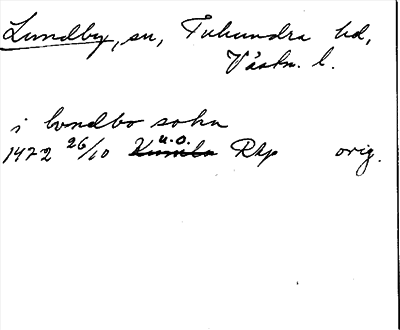 Lundby, sn, Tuhundra hd,
Västm. l.
i lvndbo sokn
u.o.
1472 26/10 Kumla Rkp orig.